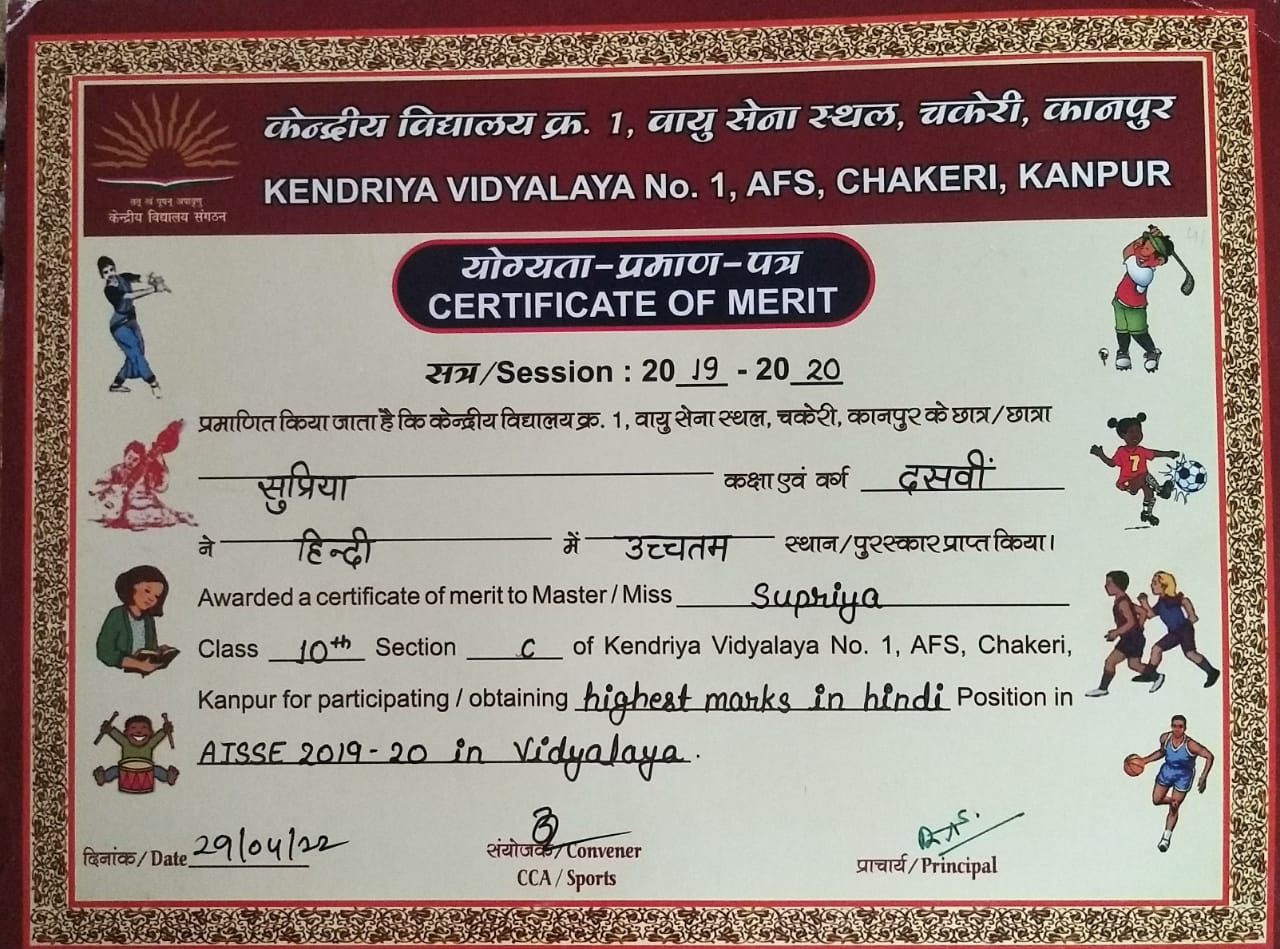 केन्द्रीय विद्यालय क्र. 1, वायु सेना स्थल, चकेरी, कानपुर
KENDRIYA VIDYALAYA No. 1, AFS, CHAKERI, KANPUR
केन्द्रीय विद्यालय संगठन
योग्यता-प्रमाण-पत्र
CERTIFICATE OF MERIT
सत्र/Session : 2019 - 2020
प्रमाणित किया जाता है कि केन्द्रीय विद्यालय क्र. 1, वायु सेना स्थल, चकेरी, कानपुर के छात्र/छात्रा
सुप्रिया कक्षा एवं वर्ग दसवीं
ने हिन्दी में उच्चतम स्थान/पुरस्कार प्राप्त किया।
Awarded a certificate of merit to Master / Miss Supriya
Class 10th Section C of Kendriya Vidyalaya No. 1, AFS, Chakeri,
Kanpur for participating / obtaining highest marks in hindi Position in
AISSE 2019-20 in Vidyalaya.
दिनांक/Date 29/04/22
संयोजक/Convener
CCA / Sports
प्राचार्य/Principal
7